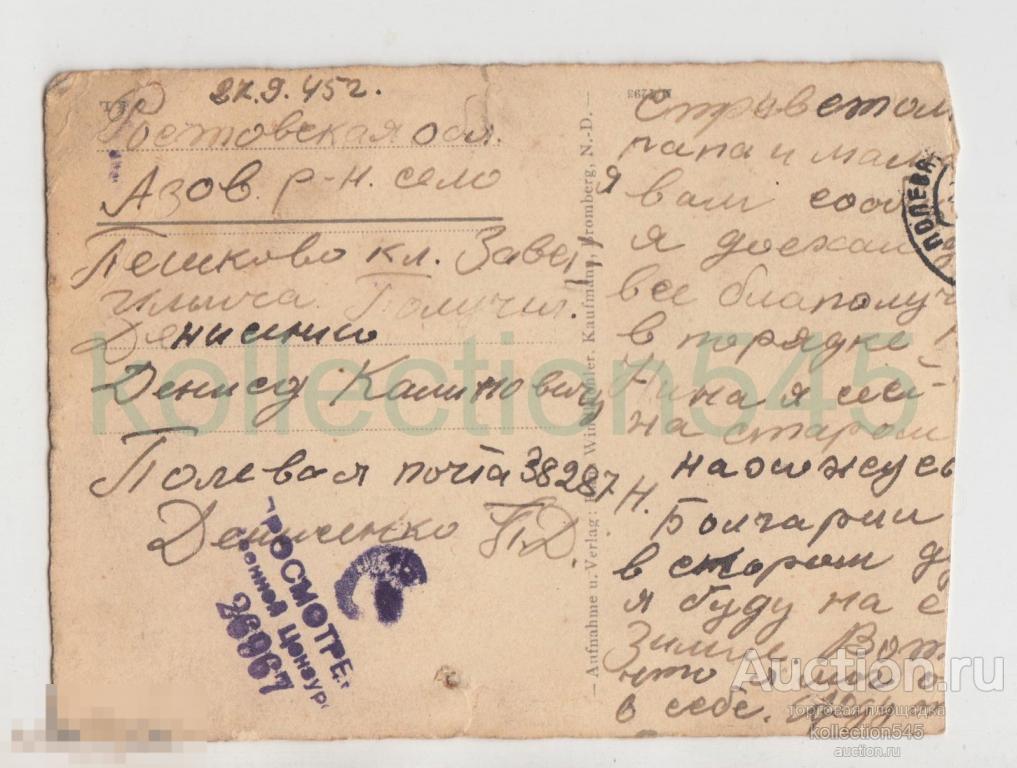 27.9.45 г.
Ростовская обл.
Азов. р-н. село
Пешково кл. Завет
Ильича. Получил.
Денисенко
Денису Калиновичу
Полевая почта 38287 Н.
Денисенко П.Д.
ПРОСМОТРЕ
военной Цензур
26967
Aufnahme u. Verlag: Kaufmann, Bromberg, N.-D.
С приветом
папа и мама
я
вам сооб
я доехал
все благополуч
в порядке
я сей
на старом
нахожусь
Болгарии
в старом
я буду на
Зимы Вот
что
в себе.
ПОЛЕВА
kollection545
Auction.ru
торговая площадка
kollection545
auction.ru